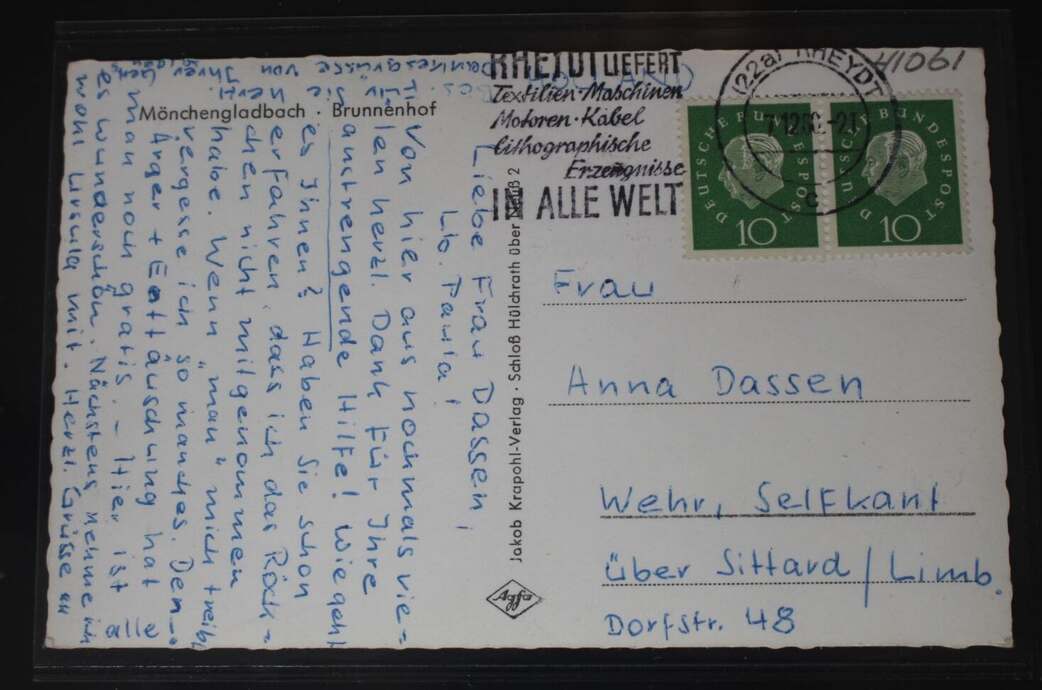 Mönchengladbach · Brunnenhof
Liebe Frau Dassen!
Lb. Paula!
Von hier aus nochmals vie-
len herzl. Dank für Ihre
anstrengende Hilfe! Wie geht
es Ihnen? Haben Sie schon
erfahren, dass ich das Röck-
chen nicht mitgenommen
habe. Wenn "man" mich treibt
vergesse ich so manches. Den
Ärger + Enttäuschung hat
man noch gratis. – Hier ist
es wunderschön. Nächstens nehme ich
wohl Ursula mit. Herzl. Grüsse an
alle
Für Sie herzl.
Dankesgrüsse von Ihrer
Jakob Krapohl-Verlag · Schloß Hülchrath über Neuß 2
Agfa
RHEYDT LIEFERT
Textilien·Maschinen
Motoren·Kabel
lithographische
Erzeugnisse
IN ALLE WELT
HOLLAND
(22a) RHEYDT
c
41061
DEUTSCHE BUNDESPOST
10
DEUTSCHE BUNDESPOST
10
Frau
Anna Dassen
Wehr, Selfkant
über Sittard/Limb.
Dorfstr. 48